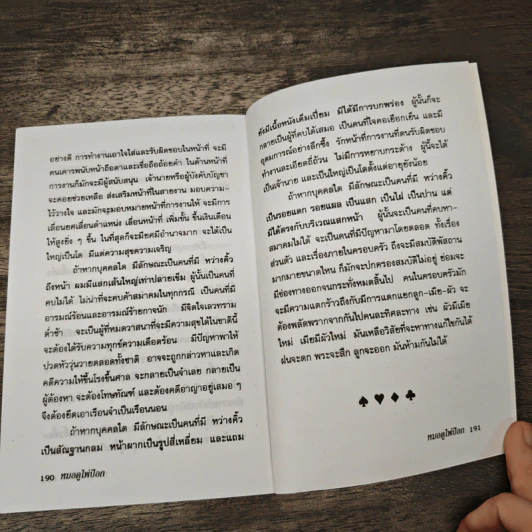 อย่างดี การทำงานเอาใจใส่และรับผิดชอบในหน้าที่ จะมี
คนเคารพนับหน้าถือตาและเชื่อถือถ้อยคำ ในด้านหน้าที่
การงานก็มักจะมีผู้สนับสนุน เจ้านายหรือผู้บังคับบัญชา
จะคอยช่วยเหลือ ส่งเสริมหน้าที่ในสายงาน มอบความ-
ไว้วางใจ และมักจะมอบหมายหน้าที่การงานให้ จะมีการ
เลื่อนยศเลื่อนตำแหน่ง เลื่อนหน้าที่ เพิ่มขั้น ขึ้นเงินเดือน
ให้สูงยิ่ง ๆ ขึ้น ในที่สุดก็จะมียศมีอำนาจมาก จะได้เป็น
ใหญ่เป็นโต มีแต่ความสุขความเจริญ
ถ้าหากบุคคลใด มีลักษณะเป็นคนที่มี หว่างคิ้ว
ถึงหน้า ผมมีแสกเส้นใหญ่เท่าปลายเข็ม ผู้นั้นเป็นคนที่
คบไม่ได้ ไม่น่าที่จะคบค้าสมาคมในทุกกรณี เป็นคนที่มี
อารมณ์ร้อนและอารมณ์ร้ายกาจนัก มีจิตใจเลวทราม
ต่ำช้า จะเป็นผู้ที่หมดวาสนาที่จะมีความสุขได้ในชาตินี้
จะต้องได้รับความทุกข์ความเดือดร้อน มีปัญหาพาให้
ปวดหัววุ่นวายตลอดทั้งชาติ อาจจะถูกกล่าวหาและเกิด
คดีความให้ขึ้นโรงขึ้นศาล จะกลายเป็นจำเลย กลายเป็น
ผู้ต้องหา จะต้องโทษทัณฑ์ และต้องคดีอาญาอยู่เสมอ ๆ
จึงต้องยึดเอาเรือนจำเป็นเรือนนอน
ถ้าหากบุคคลใด มีลักษณะเป็นคนที่มี หว่างคิ้ว
เป็นสัณฐานกลม หน้าผากเป็นรูปสี่เหลี่ยม และแถม
190 หมอดูไพ่ป๊อก
ยังมีเนื้อหนังเต็มเปี่ยม มิได้มีการบกพร่อง ผู้นั้นก็จะ
กลายเป็นผู้ที่คบได้เสมอ เป็นคนที่ใจคอเยือกเย็น และมี
อุดมการณ์อย่างลึกซึ้ง รักหน้าที่การงานที่ตนรับผิดชอบ
ทำงานละเอียดถี่ถ้วน ไม่มีการหยาบกระด้าง ผู้นี้จะได้
เป็นเจ้านาย และเป็นใหญ่เป็นโตตั้งแต่อายุยังน้อย
ถ้าหากบุคคลใด มีลักษณะเป็นคนที่มี หว่างคิ้ว
เป็นรอยแตก รอยแผล เป็นแสก เป็นไฝ เป็นปาน แต่
มิได้ตรงกับบริเวณแสกหน้า ผู้นั้นจะเป็นคนที่คบหา-
สมาคมไม่ได้ จะเป็นคนที่มีปัญหามาโดยตลอด ทั้งเรื่อง
ส่วนตัว และเรื่องภายในครอบครัว ถึงจะมีสมบัติพัสถาน
มากมายขนาดไหน ก็มักจะปกครองสมบัติไม่อยู่ ย่อมจะ
มีช่องทางออกจนกระทั่งหมดสิ้นไป คนในครอบครัวมัก
จะมีความแตกร้าวถึงกับมีการแตกแยกลูก-เมีย-ผัว จะ
ต้องพลัดพรากจากกันไปคนละทิศคนละทาง เช่น ผัวมีเมีย
ใหม่ เมียมีผัวใหม่ มันเหลือวิสัยที่จะหาทางแก้ไขกันได้
ฝนจะตก พระจะสึก ลูกจะออก มันห้ามกันไม่ได้
♠ ♥ ♦ ♣
หมอดูไพ่ป๊อก 191